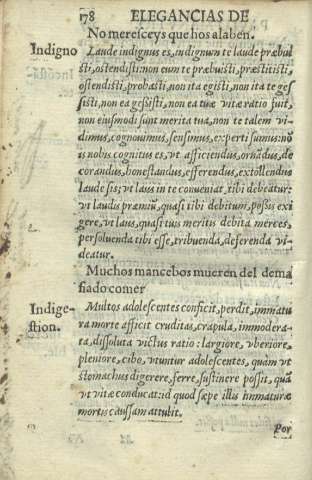 178 ELEGANCIAS DE
No meresceys que hos alaben.
Indigno Laude indignus es, indignum te laude præbui
sti, ostendisti: non eum te præbuisti, præstitisti,
ostendisti, probasti: non ita egisti, non ita te ges
sisti, non ea gessisti, non ea tuæ vitæ ratio fuit,
non eiusmodi sunt merita tua, non te talem vi-
dimus, cognouimus, sensimus, experti sumus: nō
is nobis cognitus es, vt afficiendus, ornādus, de
corandus, honestandus, efferendus, extollendus
laude sis: vt laus in te conueniat, tibi debeatur:
vt laudis præmiū, quasi tibi debitum, possis exi
gere, vt laus, quasi tuis meritis debita merces,
persoluenda tibi esse, tribuenda, deferenda vi-
deatur.
Muchos mancebos mueren del dema
siado comer
Indige-
stion.
Multos adolescentes conficit, perdit, immatu
ra morte afficit cruditas, crapula, immodera-
ta, dissoluta victus ratio: largiore, vberiore,
pleniore, cibo, vtuntur adolescentes, quàm vt
stomachus digerere, ferre, sustinere possit, quā
vt vitæ conducat: id quod sæpe illis immaturæ
mortis caussam attulit.
Por